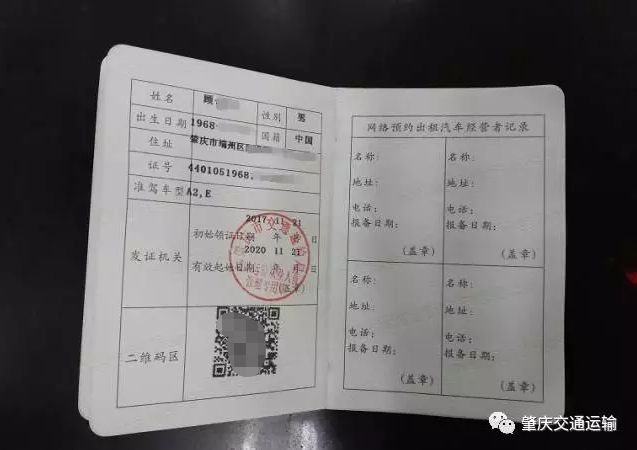 姓名 顾 性别 男
出生日期 1968- 国籍 中国
住址 肇庆市端州区
证号 4401051968
准驾车型 A2,E
发证机关
2017 11 21
初始领证日期 年 月 日
2020 11 21
有效起始日期: 年 月 日
(盖章)
二维码区
网络预约出租汽车经营者记录
名称:
地址:
电话:
报备日期:
(盖章)
名称:
地址:
电话:
报备日期:
(盖章)
名称:
地址:
电话:
报备日期:
(盖章)
名称:
地址:
电话:
报备日期:
(盖章)
肇庆交通运输